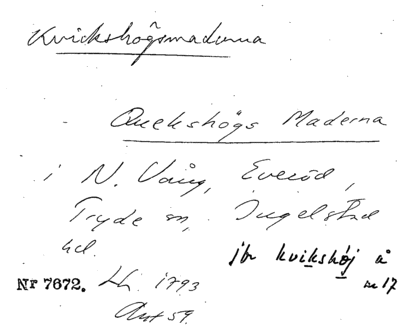 Kvickshögsmaderna
Queckshögs Maderna
i N. Vång, Everöd,
Tryde sn, Ingelstad
hd.
jbr kvikshöj å
m 17
Nr 7672. Lh. 1793
Akt 59.